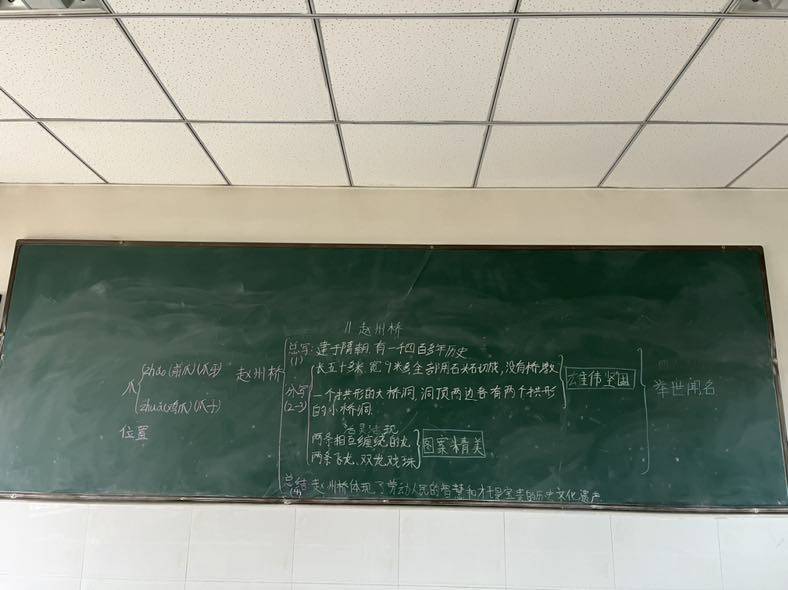 11 赵州桥
总写: 建于隋朝,有一千四百多年历史
(1)
长五十多米,宽9米多全部用石头砌成,没有桥墩
分写
(2-3)
一个拱形的大桥洞,洞顶两边各有两个拱形
的小桥洞
雄伟坚固
两条相互缠绕的龙
两条飞龙、双龙戏珠
图案精美
总结
(4)
赵州桥体现了劳动人民的智慧和才干是宝贵的历史文化遗产
举世闻名
赵州桥
爪
zhǎo(前爪)
zhuǎ
位置